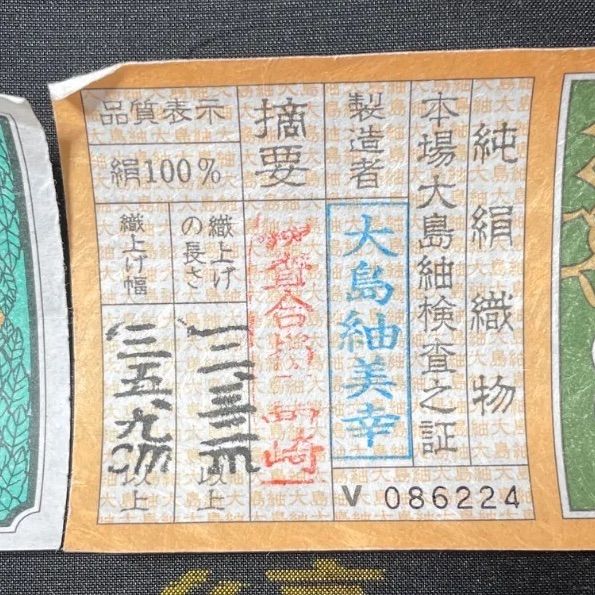 純絹織物
本場大島紬検査之証
製造者
大島紬美幸
V 086224
摘要
検査合格
織上げの長さ
一二、三二m以上
織上げ幅
三五、九cm以上
品質表示
絹100%